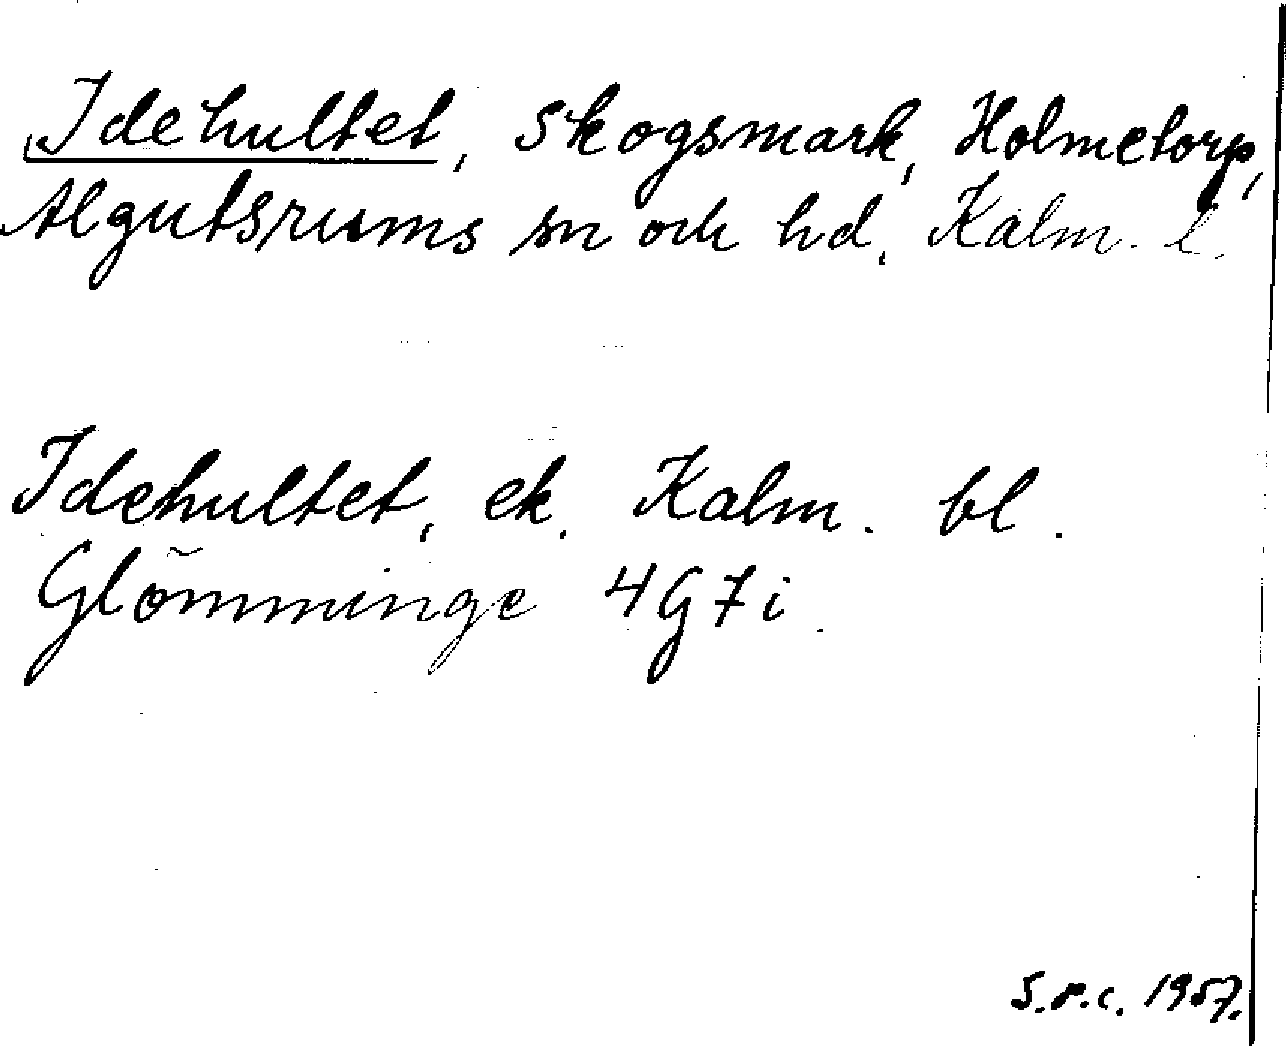 Idehultet, skogsmark, Holmetorp,
Algutsrums sn och hd, Kalm. l.
Idehultet, ek. Kalm. bl.
Glömminge 4G7i
1957.